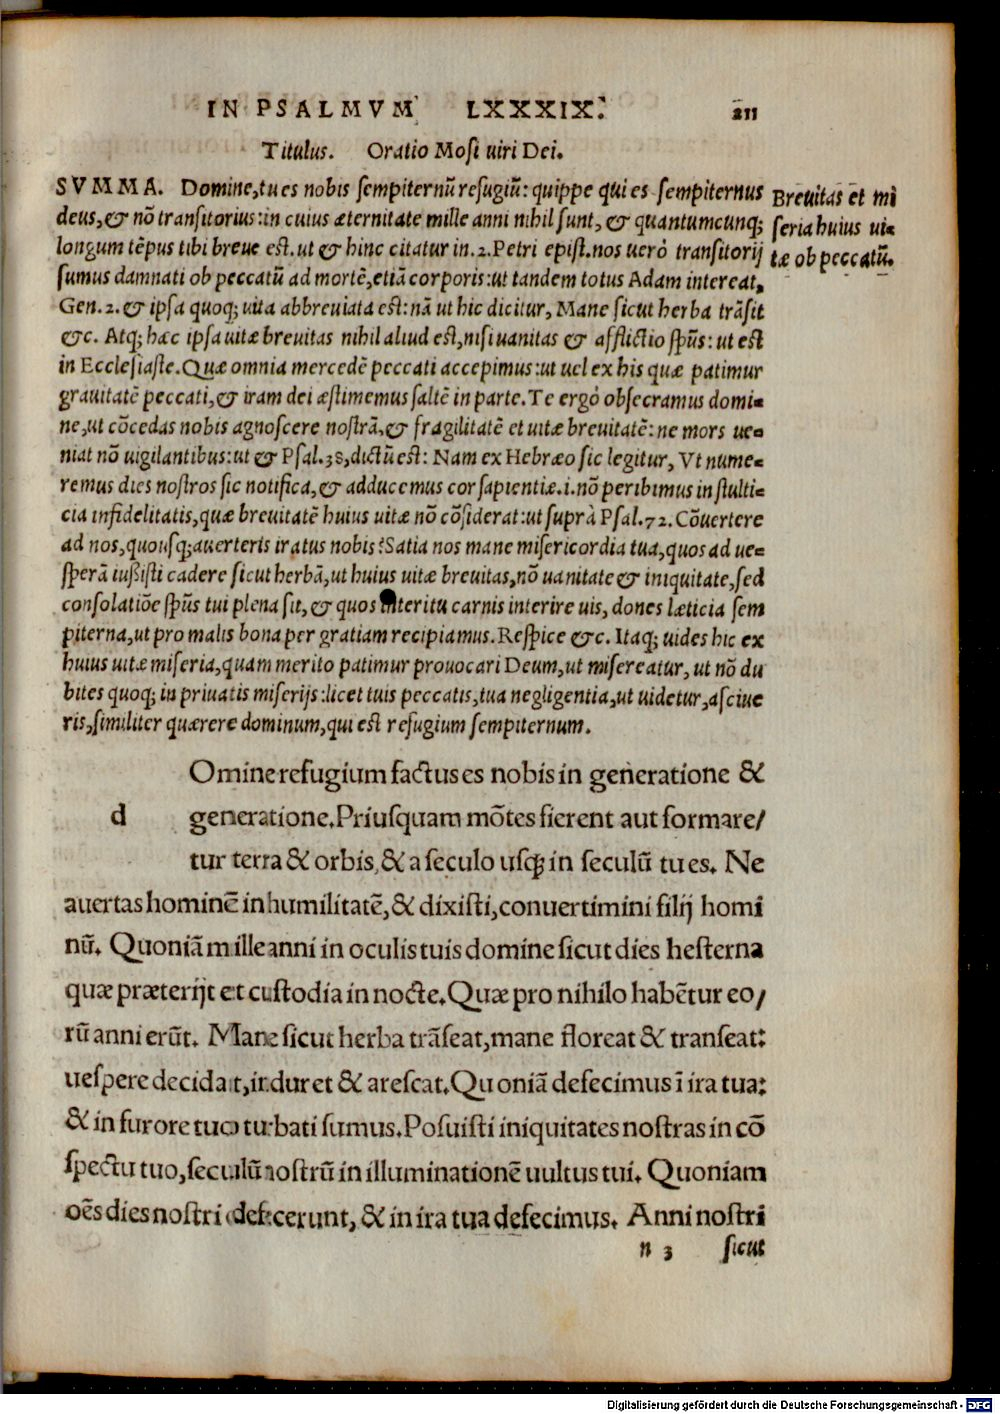 IN PSALMVM LXXXIX. 211
Titulus. Oratio Mosi uiri Dei.
SVMMA. Domine, tu es nobis sempiternũ refugiũ: quippe qui es sempiternus
deus, & nõ transitorius: in cuius æternitate mille anni nihil sunt, & quantumcunq;
longum tẽpus tibi breue est. ut & hinc citatur in. 2. Petri epist. nos uerò transitorij
sumus damnati ob peccatũ ad mortẽ, etiã corporis: ut tandem totus Adam intereat,
Gen. 2. & ipsa quoq; uita abbreuiata est: nã ut hic dicitur, Mane sicut herba trãsit
&c. Atq; hæc ipsa uitæ breuitas nihil aliud est, nisi uanitas & afflictio spũs: ut est
in Ecclesiaste. Quæ omnia mercedẽ peccati accepimus: ut uel ex his quæ patimur
grauitatẽ peccati, & iram dei æstimemus saltẽ in parte. Te ergò obsecramus domi=
ne, ut cõcedas nobis agnoscere nostrã, & fragilitatẽ et uitæ breuitatẽ: ne mors ue=
niat nõ uigilantibus: ut & Psal. 38, dictũ est: Nam ex Hebræo sic legitur, Vt nume=
remus dies nostros sic notifica, & adducemus cor sapientiæ. i. nõ peribimus in stulti=
cia infidelitatis, quæ breuitatẽ huius uitæ nõ cõsiderat: ut suprà Psal. 72. Cõuertere
ad nos, quousq; auerteris iratus nobis? Satia nos mane misericordia tua, quos ad ue=
sperã iussisti cadere sicut herbã, ut huius uitæ breuitas, nõ uanitate & iniquitate, sed
consolatiõe spũs tui plena sit, & quos interitu carnis interire uis, dones læticia sem
piterna, ut pro malis bona per gratiam recipiamus. Respice &c. Itaq; uides hic ex
huius uitæ miseria, quam merito patimur prouocari Deum, ut misereatur, ut nõ du
bites quoq; in priuatis miserijs: licet tuis peccatis, tua negligentia, ut uidetur, asciue
ris, similiter quærere dominum, qui est refugium sempiternum.
Breuitas et mi
seria huius ui=
tæ ob peccatũ.
d Omine refugium factus es nobis in generatione &
generatione. Priusquam mõtes fierent aut formare/
tur terra & orbis, & a seculo usq; in seculũ tu es. Ne
auertas hominẽ in humilitatẽ, & dixisti, conuertimini filij homi
nũ. Quoniã mille anni in oculis tuis domine sicut dies hesterna
quæ præterijt et custodia in nocte. Quæ pro nihilo habẽtur eo/
rũ anni erũt. Mane sicut herba trãseat, mane floreat & transeat:
uespere decidat, induret & arescat. Quoniã defecimus ĩ ira tua:
& in furore tuo turbati sumus. Posuisti iniquitates nostras in cõ
spectu tuo, seculũ nostrũ in illuminationẽ uultus tui. Quoniam
oẽs dies nostri defecerunt, & in ira tua defecimus. Anni nostri
n 3 sicut
Digitalisierung gefördert durch die Deutsche Forschungsgemeinschaft - DFG